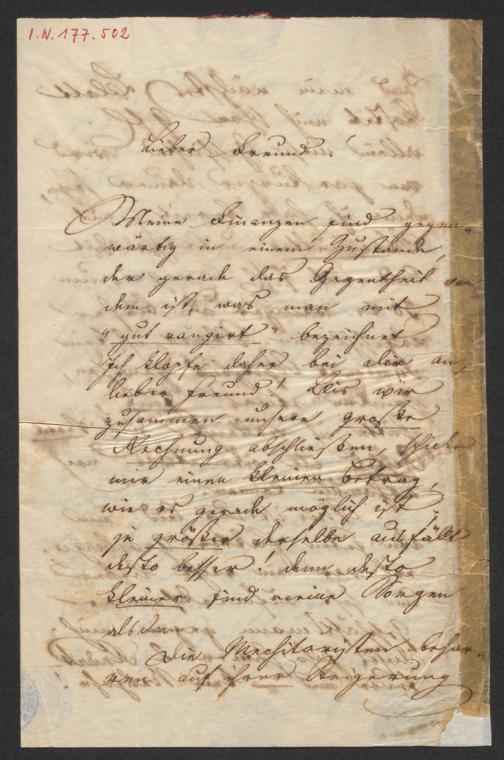 I.N. 177.502
Lieber Freund!
Meine Finanzen sind gegen-
wärtig in einem Zustande,
der gerade das Gegentheil von
dem ist, was man mit
"gut rangirt" bezeichnet
Ich klopfe daher bei dir an,
lieber Freund! Bis wir
zusammen unsere große
Rechnung abschließen, schicke
mir einen kleinen Betrag,
wie es gerade möglich ist,
je größer derselbe ausfällt
desto besser! denn desto
kleiner sind meine Sorgen
alsdann.
Die Mechitaristen behar-
ren auf ihrer Steigerung